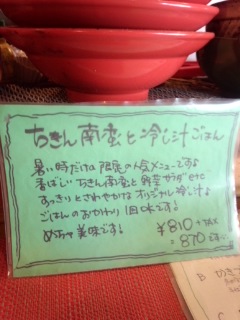 ちきん南蛮と冷し汁ごはん
暑い時だけの限定の人気メニューです♪
香ばしいちきん南蛮と野菜サラダetc
すっきりとさわやかなオリジナル冷し汁♪
ごはんのおかわり1回OKです!
めちゃ美味です!
¥810+TAX
=870です
B
C